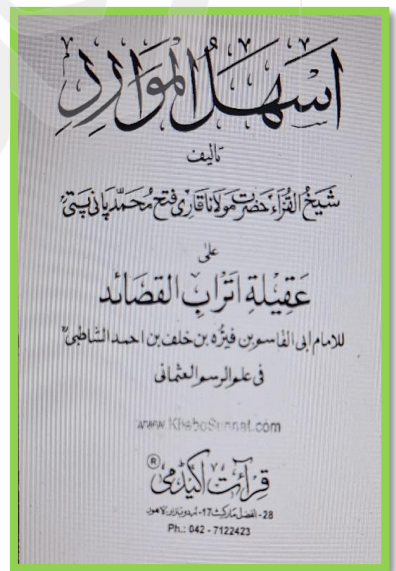 اَسْهَلُ الْمَوَارِدِ
تالیف
شَیْخُ القُرَّاءِ حضرت مولانا قاری فتح محمد پانی پتیؒ
علی
عَقِیْلَةِ اَتْرَابِ الْقَصَائِد
للامام ابی القاسم بن فیرُّہ بن خلف بن احمد الشاطبیؒ
فی علم الرسم العثمانی
www.KitaboSunnat.com
قرآءت اکیڈمی®
28- الفضل مارکیٹ 17- اردو بازار لاهور
Ph.: 042 - 7122423